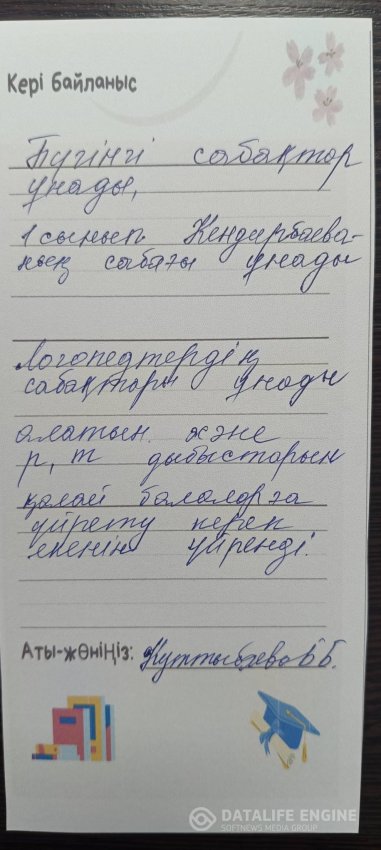 Кері байланыс
Бүгінгі сабақтар
ұнады,
1 сынып. Кендирбаева-
ның сабағы ұнады
Логопедтердің
сабақтары ұнады
алатын. және
р, т дыбыстарын
қалай балаларға
үйрету керек
екенін үйренді.
Аты-жөніңіз: Куттыбаева Б.
DATALIFE ENGINE
SOFTNEWS MEDIA GROUP